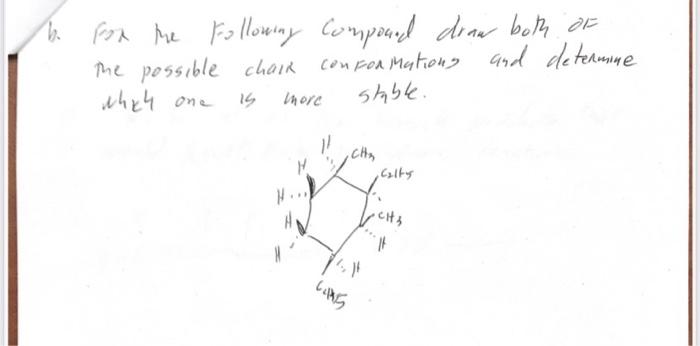 b. For the Following Compound draw both of
The possible chair conformations and determine
which one is more stable.
H CH3
H C2H5
H
H CH3
H H
H
C2H5